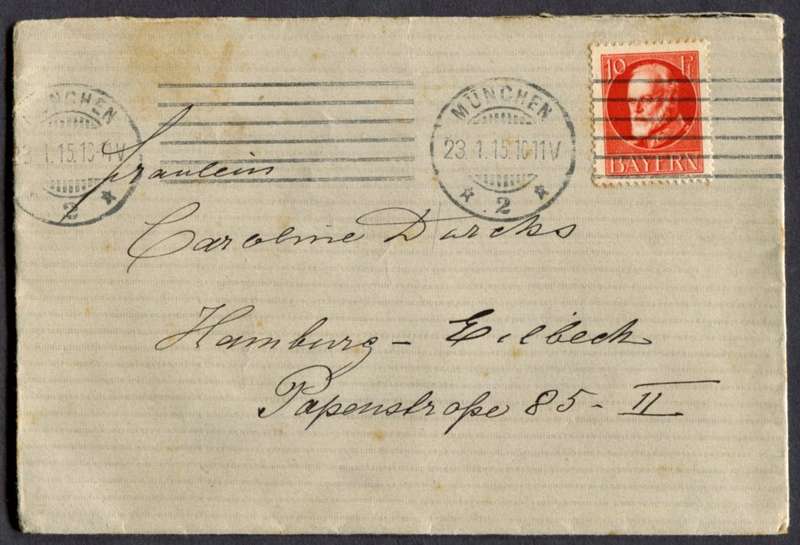 MÜNCHEN
23.1.15.10-11V
2
MÜNCHEN
23.1.15.10-11V
2
10 Pf
BAYERN
Fräulein
Caroline Dürcks
Hamburg - Eilbeck
Papenstraße 85 - II